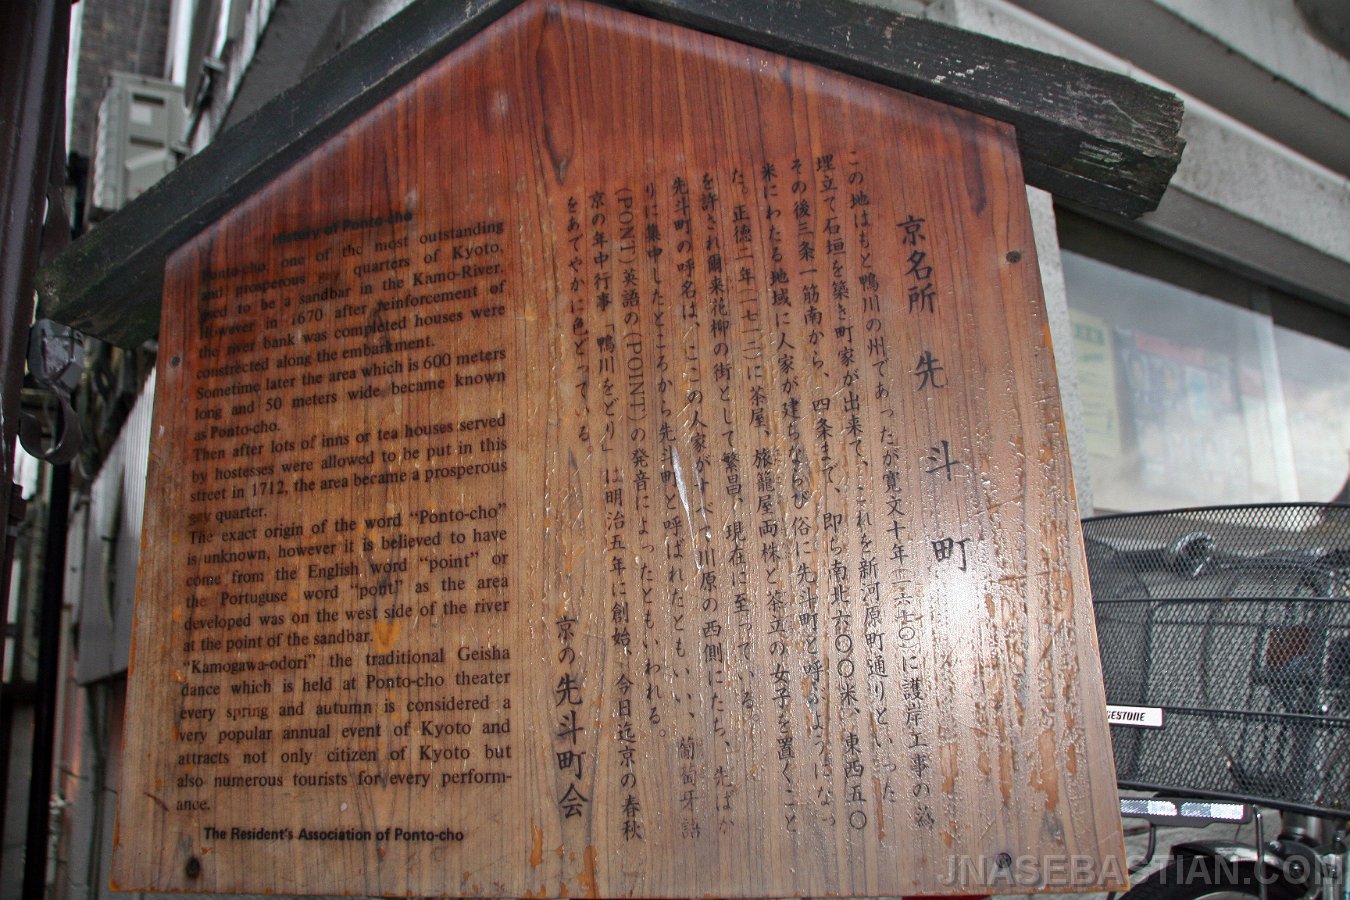 History of Ponto-cho
Ponto-cho, one of the most outstanding
and prosperous gay quarters of Kyoto,
used to be a sandbar in the Kamo-River.
However in 1670 after reinforcement of
the river bank was completed houses were
constrected along the embarkment.
Sometime later the area which is 600 meters
long and 50 meters wide became known
as Ponto-cho.
Then after lots of inns or tea houses served
by hostesses were allowed to be put in this
street in 1712, the area became a prosperous
gay quarter.
The exact origin of the word "Ponto-cho"
is unknown, however it is believed to have
come from the English word "point" or
the Portuguse word "pont" as the area
developed was on the west side of the river
at the point of the sandbar.
"Kamogawa-odori" the traditional Geisha
dance which is held at Ponto-cho theater
every spring and autumn is considered a
very popular annual event of Kyoto and
attracts not only citizen of Kyoto but
also numerous tourists for every perform-
ance.
The Resident's Association of Ponto-cho
京名所 先斗町
この地はもと鴨川の州であったが寛文十年(一六七〇)に護岸工事の為
埋立て石垣を築き町家が出来て、これを新河原町通りといった
その後三条一筋南から、四条まで、即ち南北六〇〇米、東西五〇
米にわたる地域に人家が建ちならび俗に先斗町と呼ぶようになっ
た。正徳二年(一七一二)に茶屋、旅籠屋両株と茶立の女子を置くこと
を許され爾来花柳の街として繁昌、現在に至っている。
先斗町の呼名は、ここの人家がすべて川原の西側にたち、先ばか
りに集中したところから先斗町と呼ばれたともいい、葡萄牙語
(PONT)英語の(POINT)の発音によったともいわれる。
京の年中行事「鴨川をどり」は明治五年に創始、今日迄京の春秋
をあでやかに色どっている。
京の先斗町会
GESTONE
JNASEBASTIAN.COM